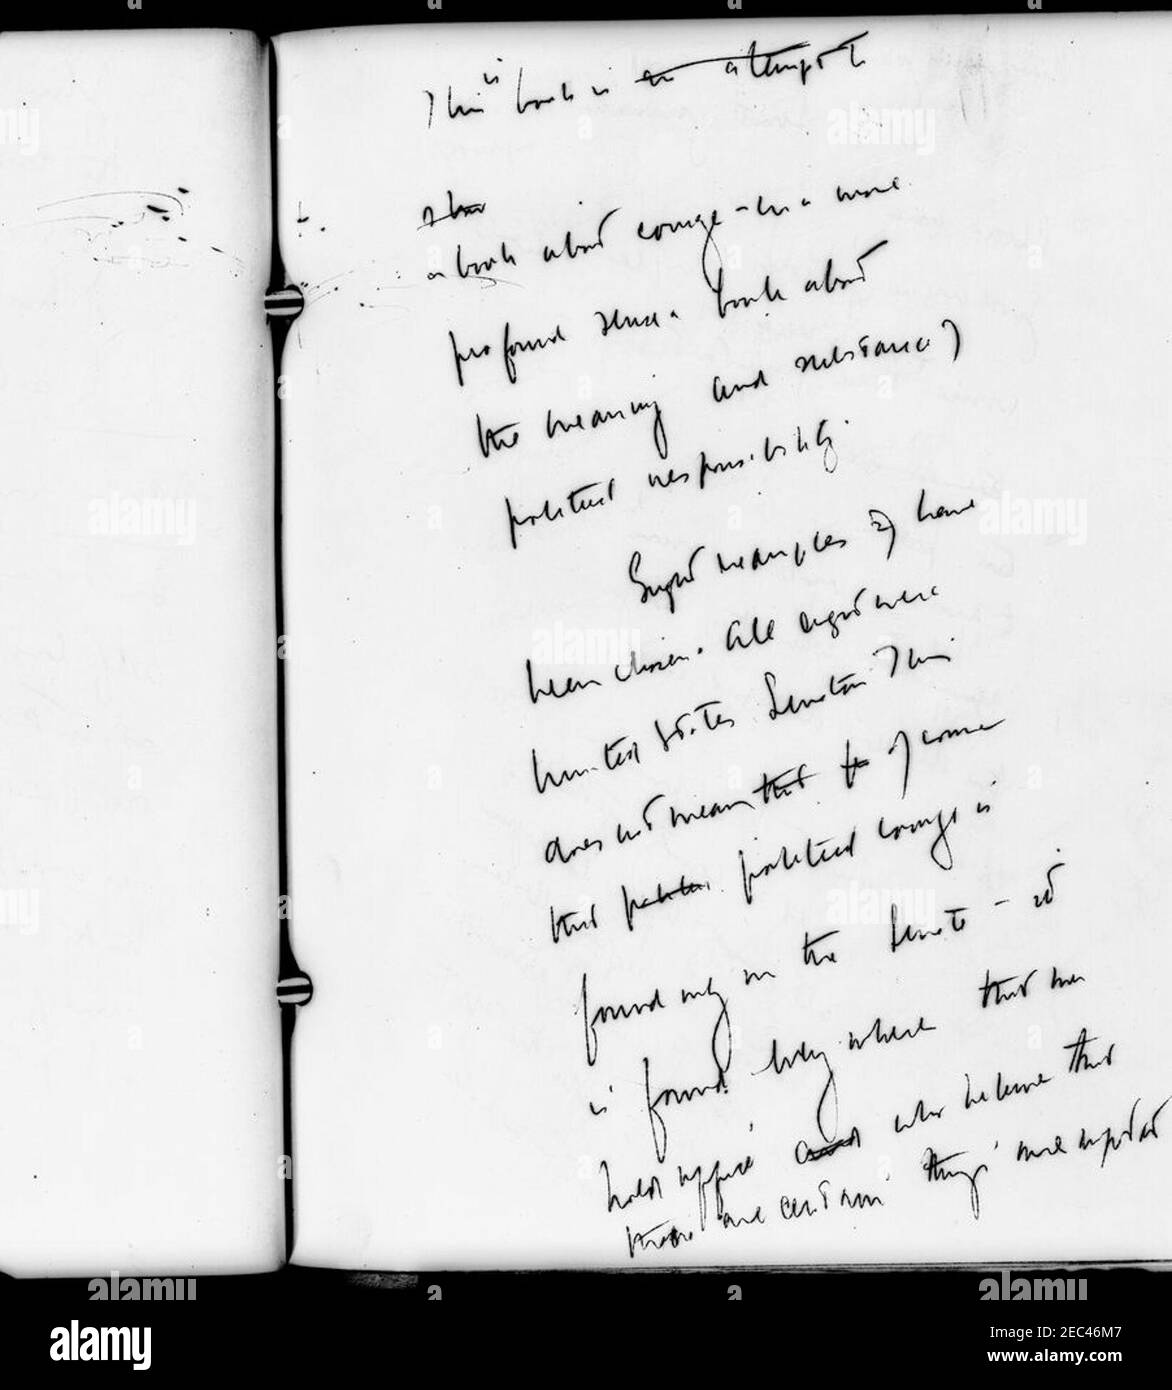 This is book is an attempt to
show
a book about courage - in a more
profound sense a book about
the meaning and substance of
political responsibility.
Eight examples of have
been chosen. All eight were
United States Senators This
does not mean that to of course
that political courage is
found only in the Senate - it
is found everywhere that men
hold office and who believe that
there are certain things more important
alamy
Image ID: 2EC46M7
www.alamy.com